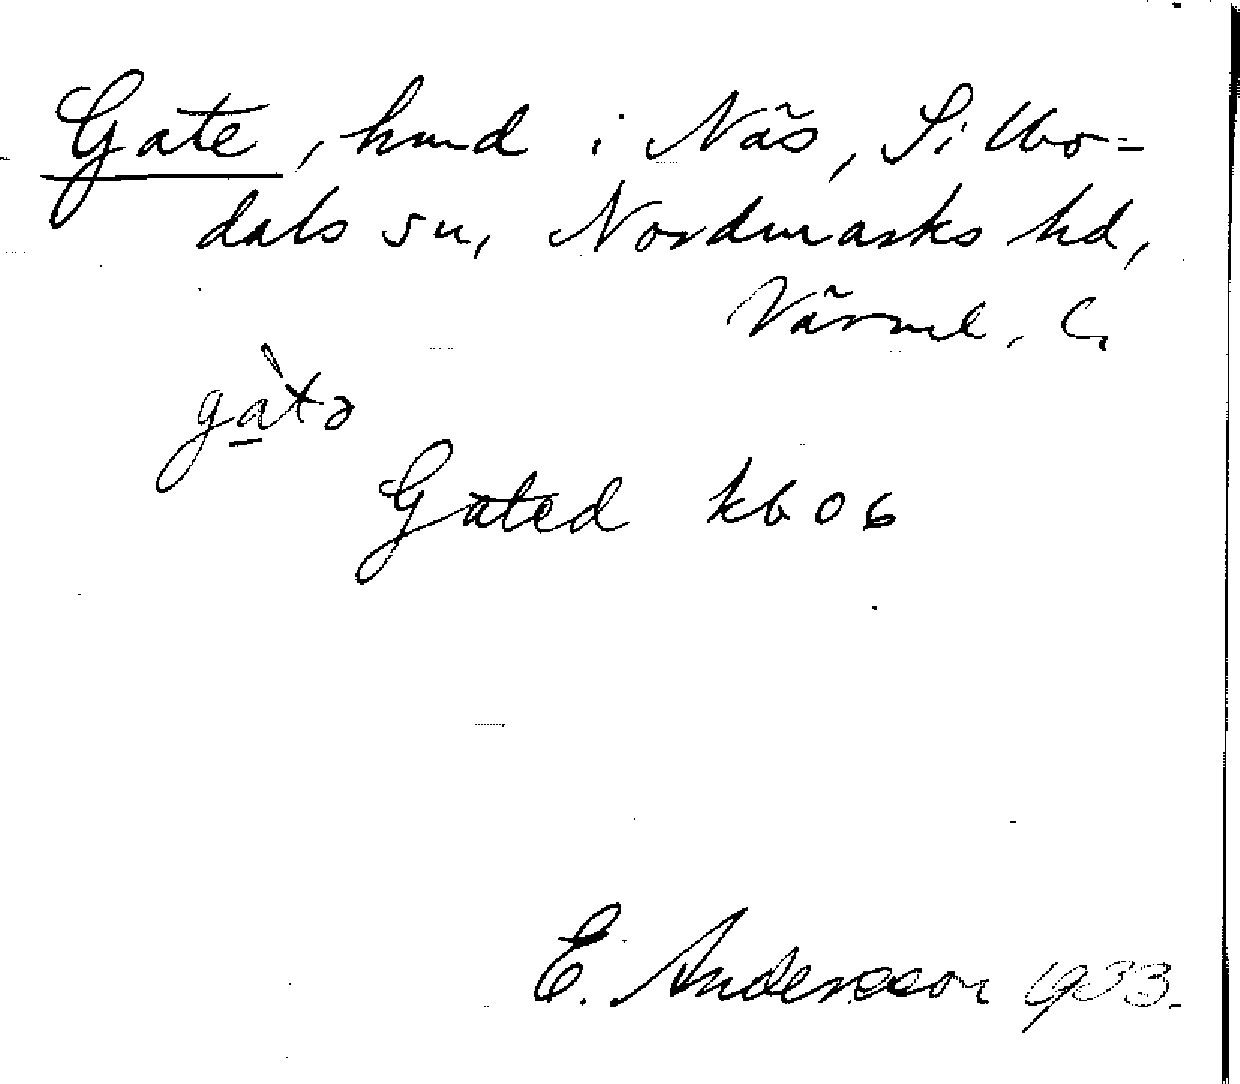 Gate, hmd i Näs, Sillbo=
dals sn, Nordmarks hd,
Värml. l.
gàtə
Gated kb 06
E. Andersson 1933.